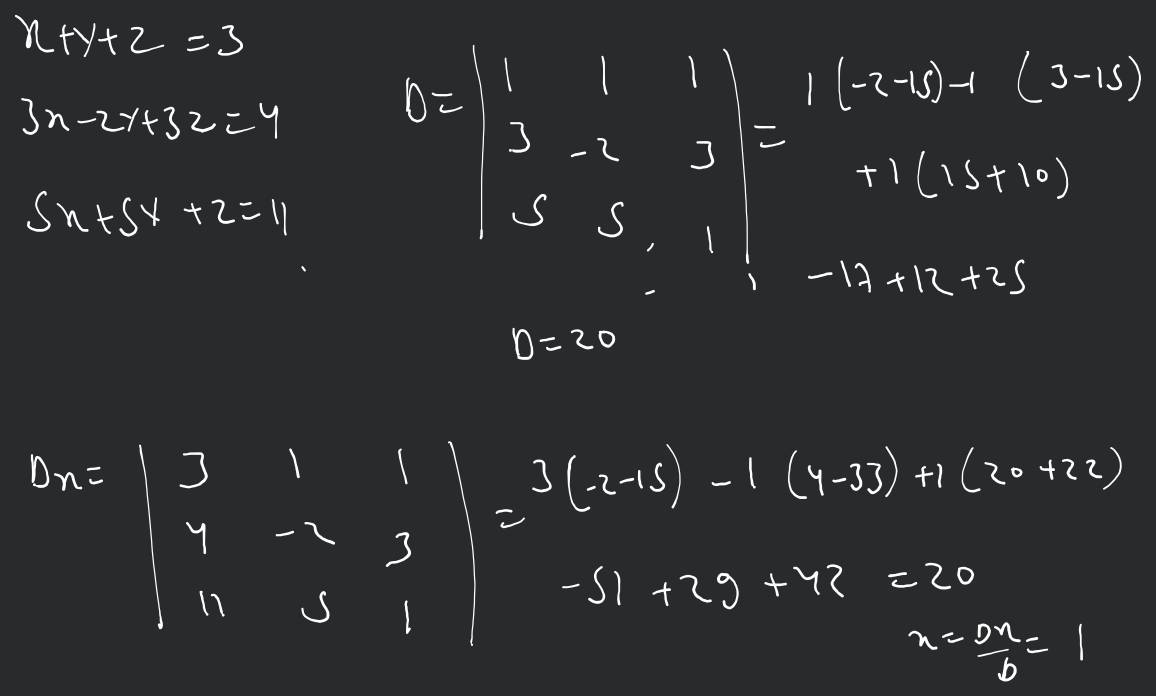 x+y+z = 3
3x-2y+3z=4
5x+5y+z=11
D= | 1 1 1 | = 1 (-2-15)-1 (3-15)
| 3 -2 3 | +1(15+10)
| 5 5 1 | -17+12+25
D=20
Dx= | 3 1 1 | = 3(-2-15) -1 (4-33) +1 (20+22)
| 4 -2 3 |
| 11 5 1 | -51 +29 +42 =20
x= Dx/D = 1